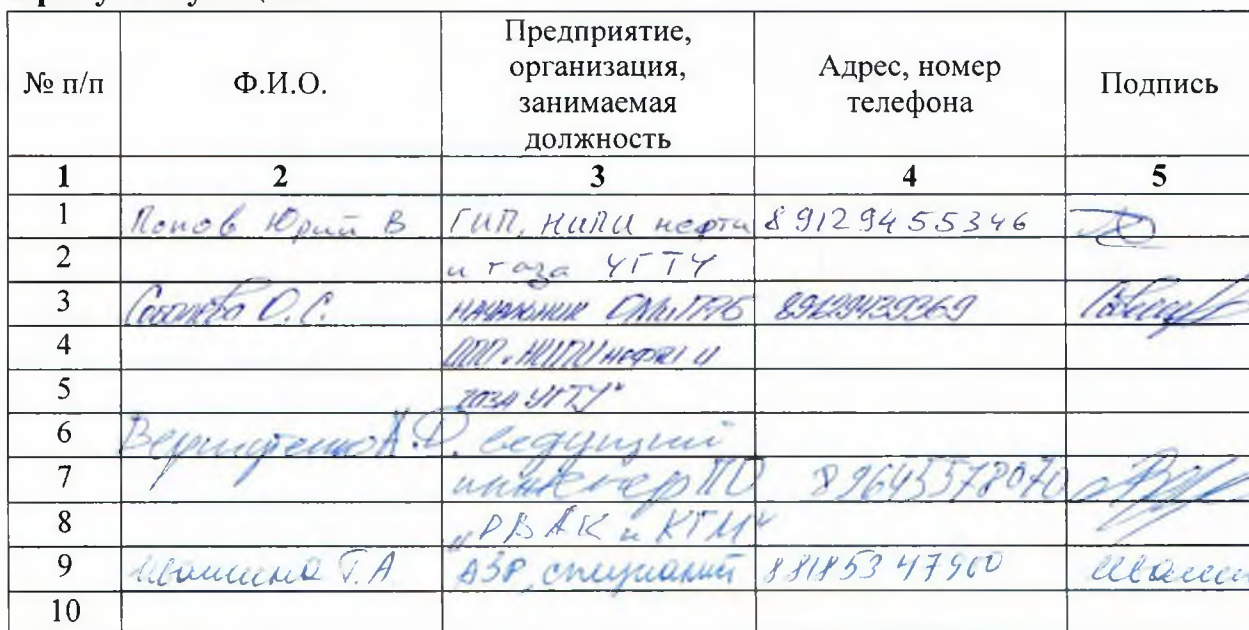 № п/п Ф.И.О. Предприятие, организация, занимаемая должность Адрес, номер телефона Подпись
1 2 3 4 5
1 Попов Юрий В ГИП, НИПИ нефти 8 912 94 55346
2 и газа УГТУ
3 О.С. начальник 89129439369
4 ООО "НИПИ нефти и
5 газа УГТУ"
6 А.Д. ведущий
7 инженер ПО 89643578070
8 "РВ АК и КТМ"
9 Т.А АЗР, специалист 881853 47900
10